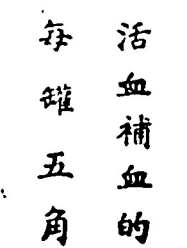 活血補血的
每罐五角